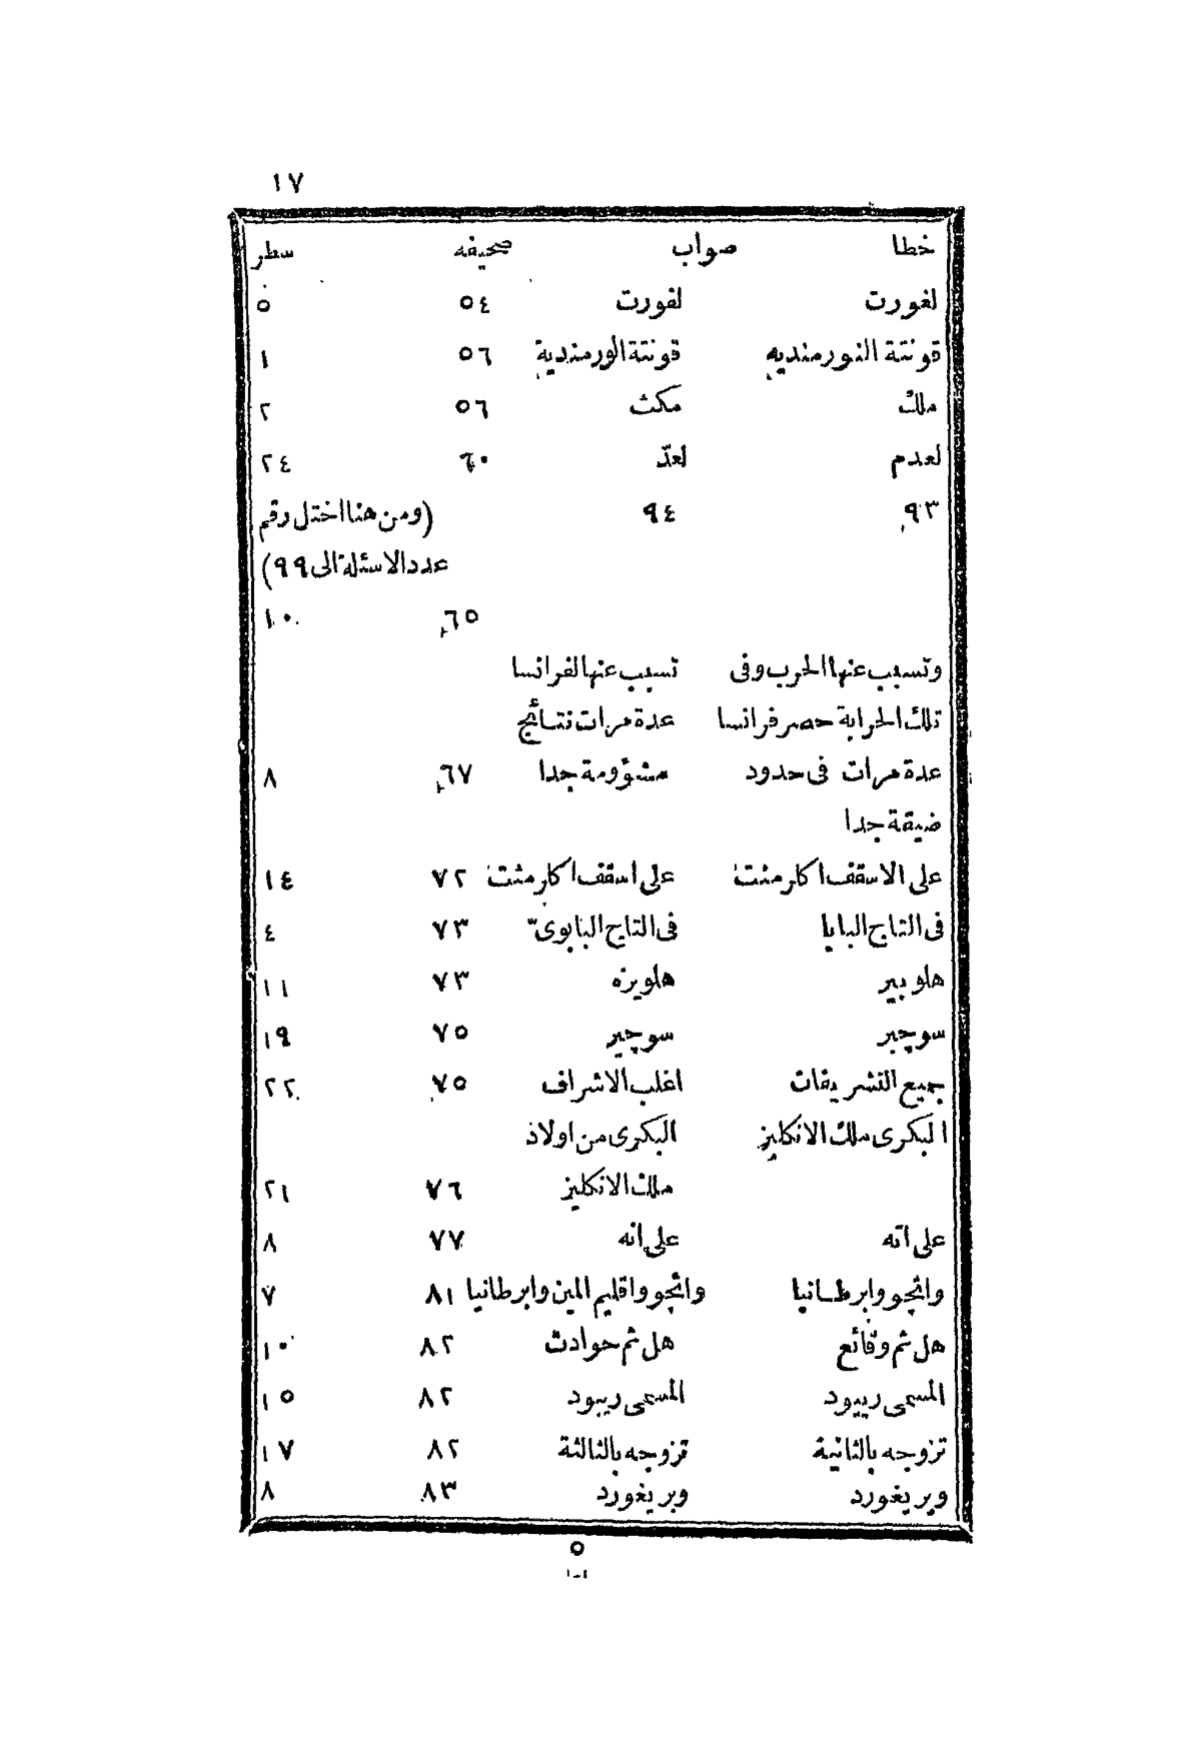 ١٧
خطا صواب صحيفه سطر
لغورت لفورت ٥٤ ٥
قونتة النورمنديه قونتة الورمندية ٥٦ ١
ملك مكث ٥٦ ٢
لعدم لعدّ ٦٠ ٢٤
٩٣ ٩٤ (ومن هنا اختل رقم
عدد الاسئلة الى ٩٩)
٦٥ ١٠
وتسبب عنها الحرب وفى تسبب عنها لفرانسا
تلك الحرابة حصر فرانسا عدة مرات نتائج
عدة مرات فى حدود مشؤومة جدا ٦٧ ٨
ضيقة جدا
على الاسقف اكارمنت على اسقف اكارمنت ٧٢ ١٤
فى التاج البابا فى التاج البابوىّ ٧٣ ٤
هلوبيز هلويزه ٧٣ ١١
سوچبر سوچير ٧٥ ١٩
جميع التشريفات اغلب الاشراف ٧٥ ٢٢
البكرى ملك الانكليز البكرى من اولاد
ملك الانكليز ٧٦ ٢١
على اته على انه ٧٧ ٨
وانجو وابرطانيا وانجو واقليم المين وابرطانيا ٨١ ٧
هل ثم وقائع هل ثم حوادث ٨٢ ١٠
المسمى ربيود المسمى ريبود ٨٢ ١٥
تزوجه بالثانية تزوجه بالثالثة ٨٢ ١٧
ويريغورد وبريغورد ٨٣ ٨
٥